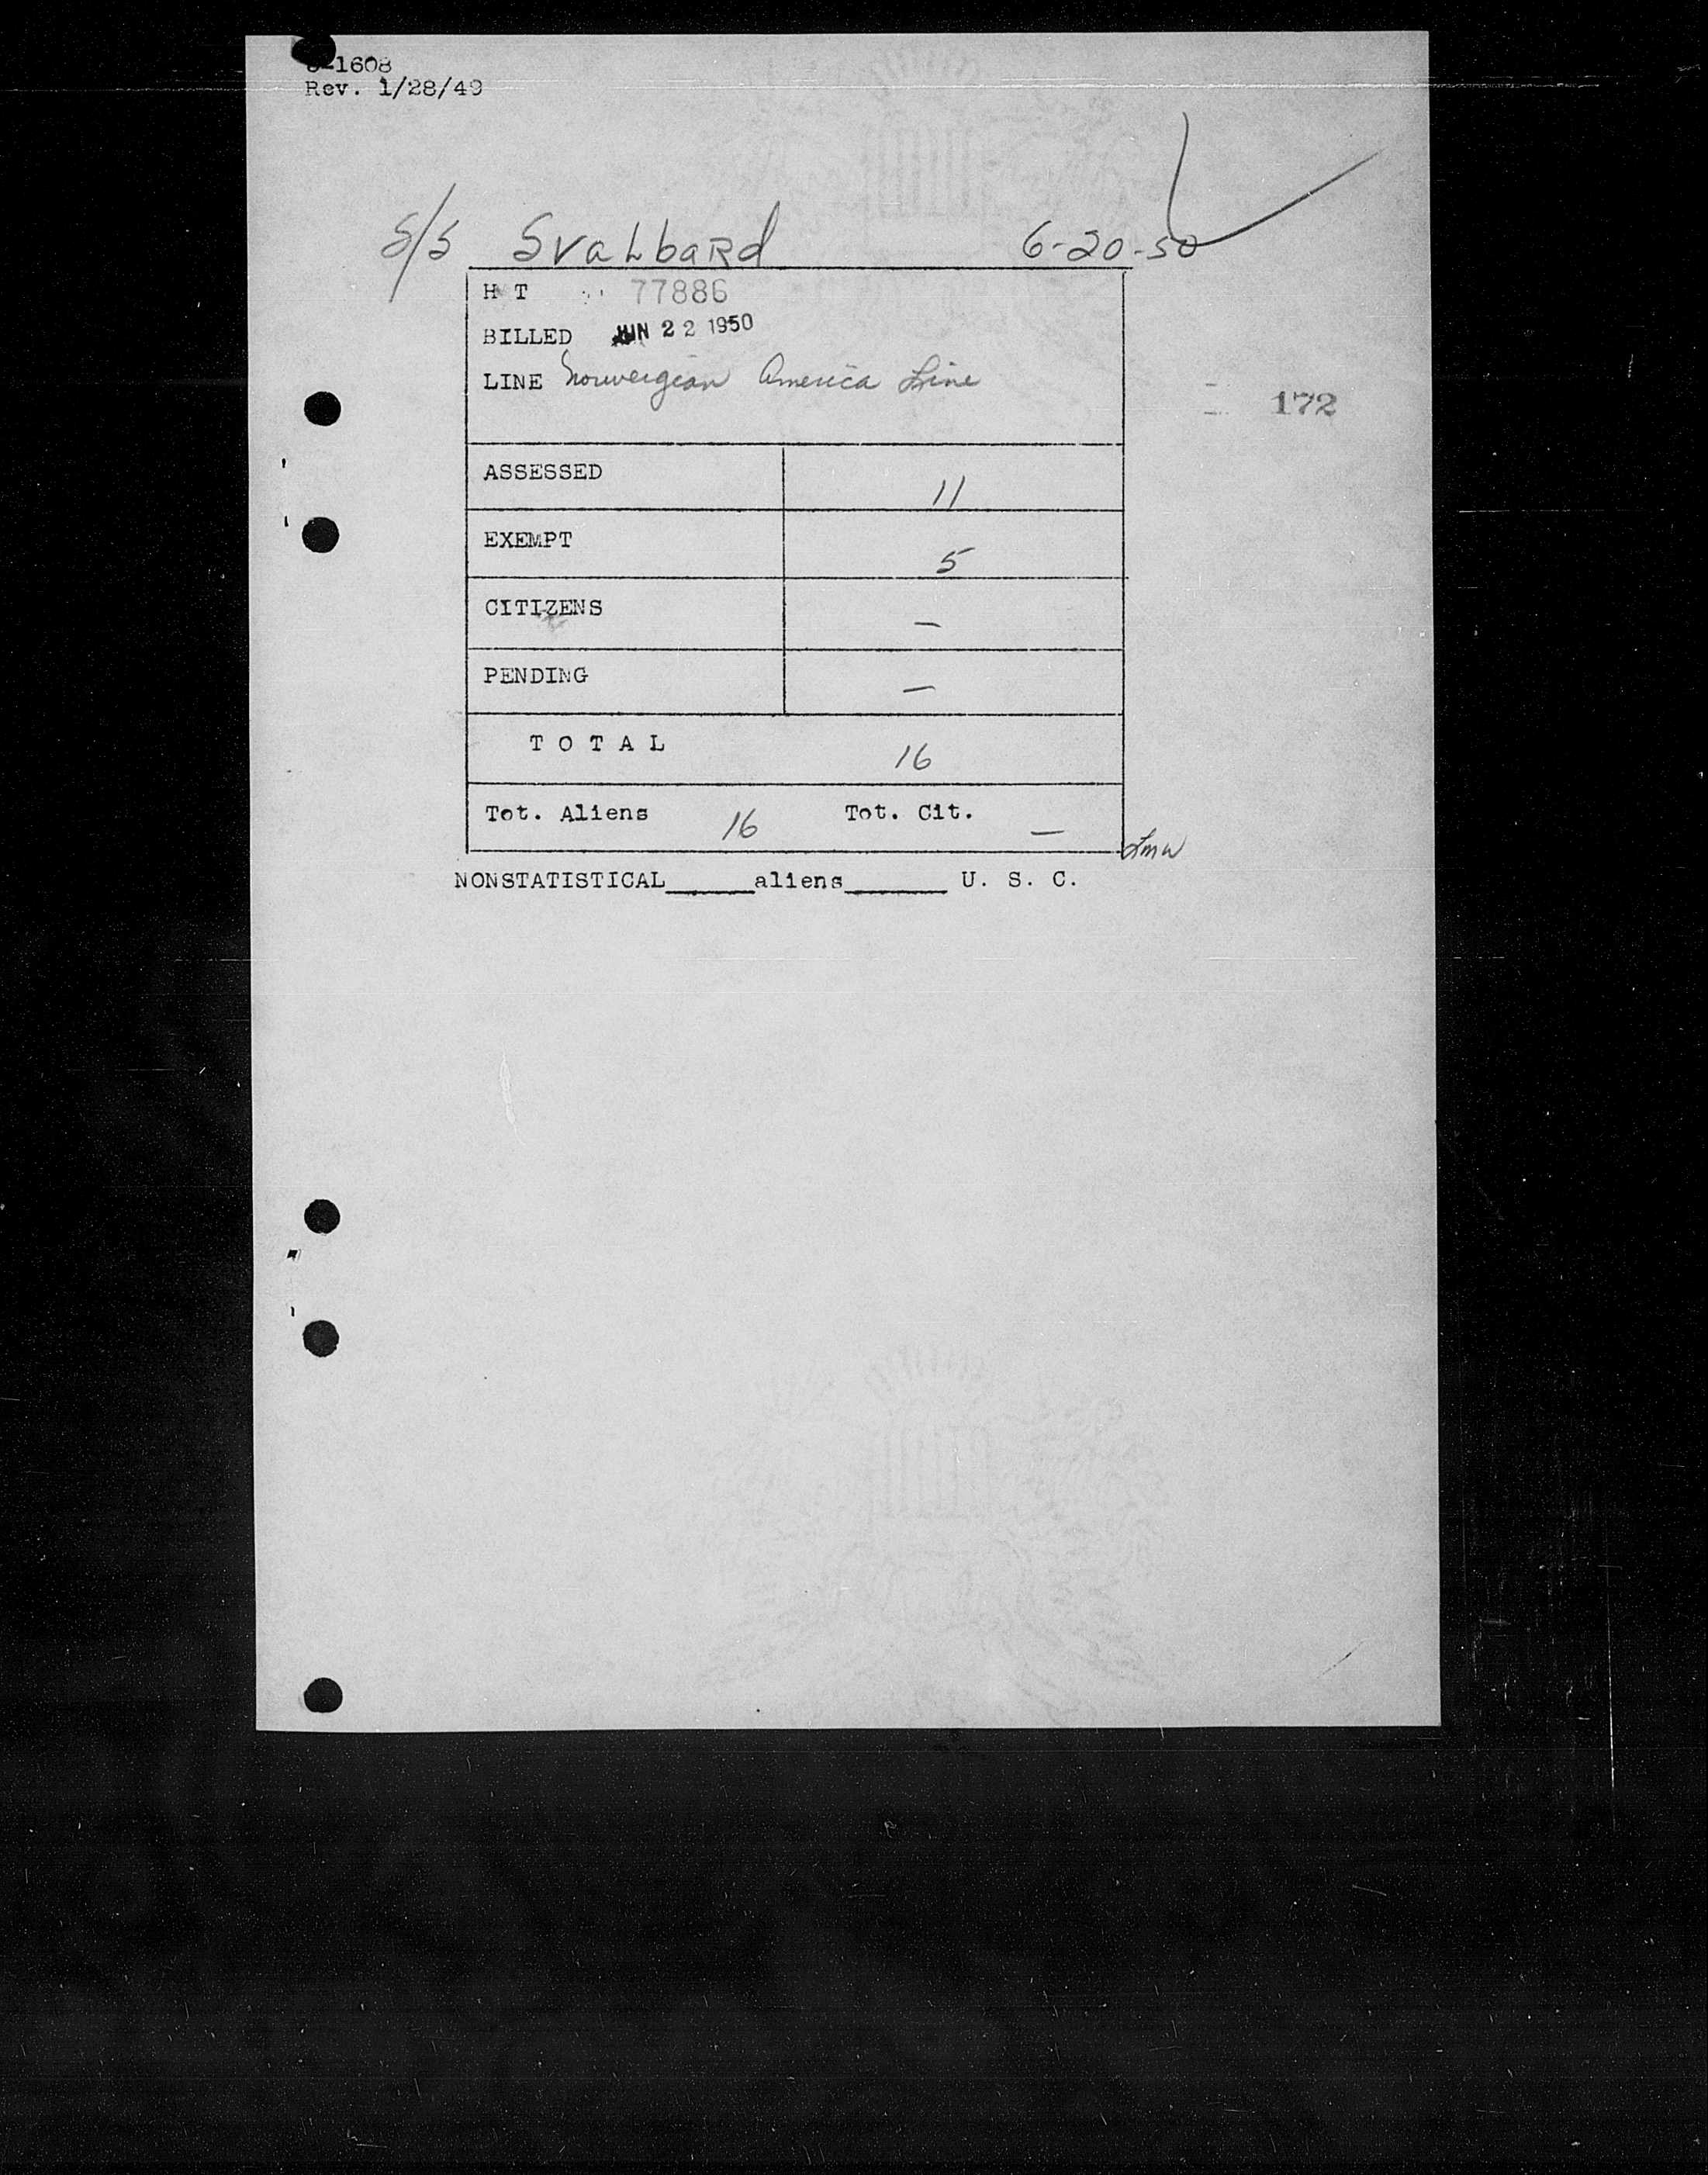 -1608
Rev. 1/28/49
S/S Svalbard 6-20-50
H T 77886
BILLED JUN 22 1950
LINE Norwegian America Line
172
ASSESSED 11
EXEMPT 5
CITIZENS —
PENDING —
T O T A L 16
Tot. Aliens 16 Tot. Cit. —
Lmw
NONSTATISTICAL______aliens_______ U. S. C.